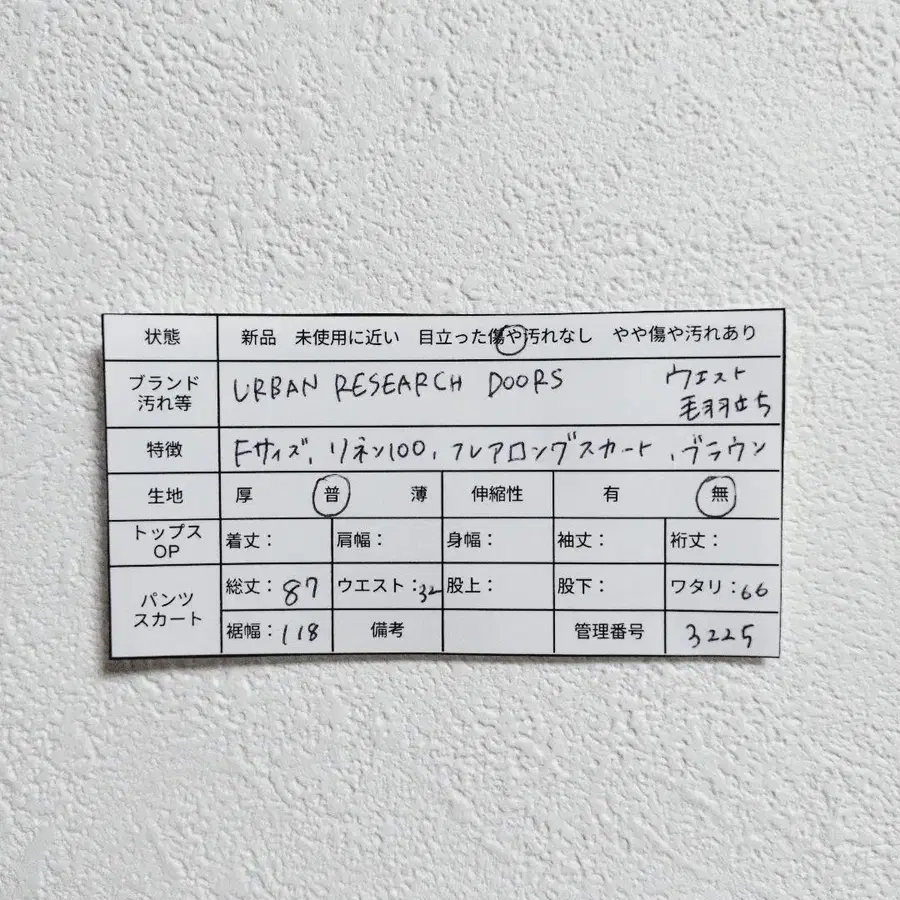 状態 新品 未使用に近い 目立った傷や汚れなし やや傷や汚れあり
ブランド 汚れ等 URBAN RESEARCH DOORS ウエスト 毛羽立ち
特徴 Fサイズ、リネン100、フレアロングスカート、ブラウン
生地 厚 普 薄 伸縮性 有 無
トップス OP 着丈： 肩幅： 身幅： 袖丈： 裄丈：
パンツ スカート 総丈：87 ウエスト：32 股上： 股下： ワタリ：66
裾幅：118 備考 管理番号 3225